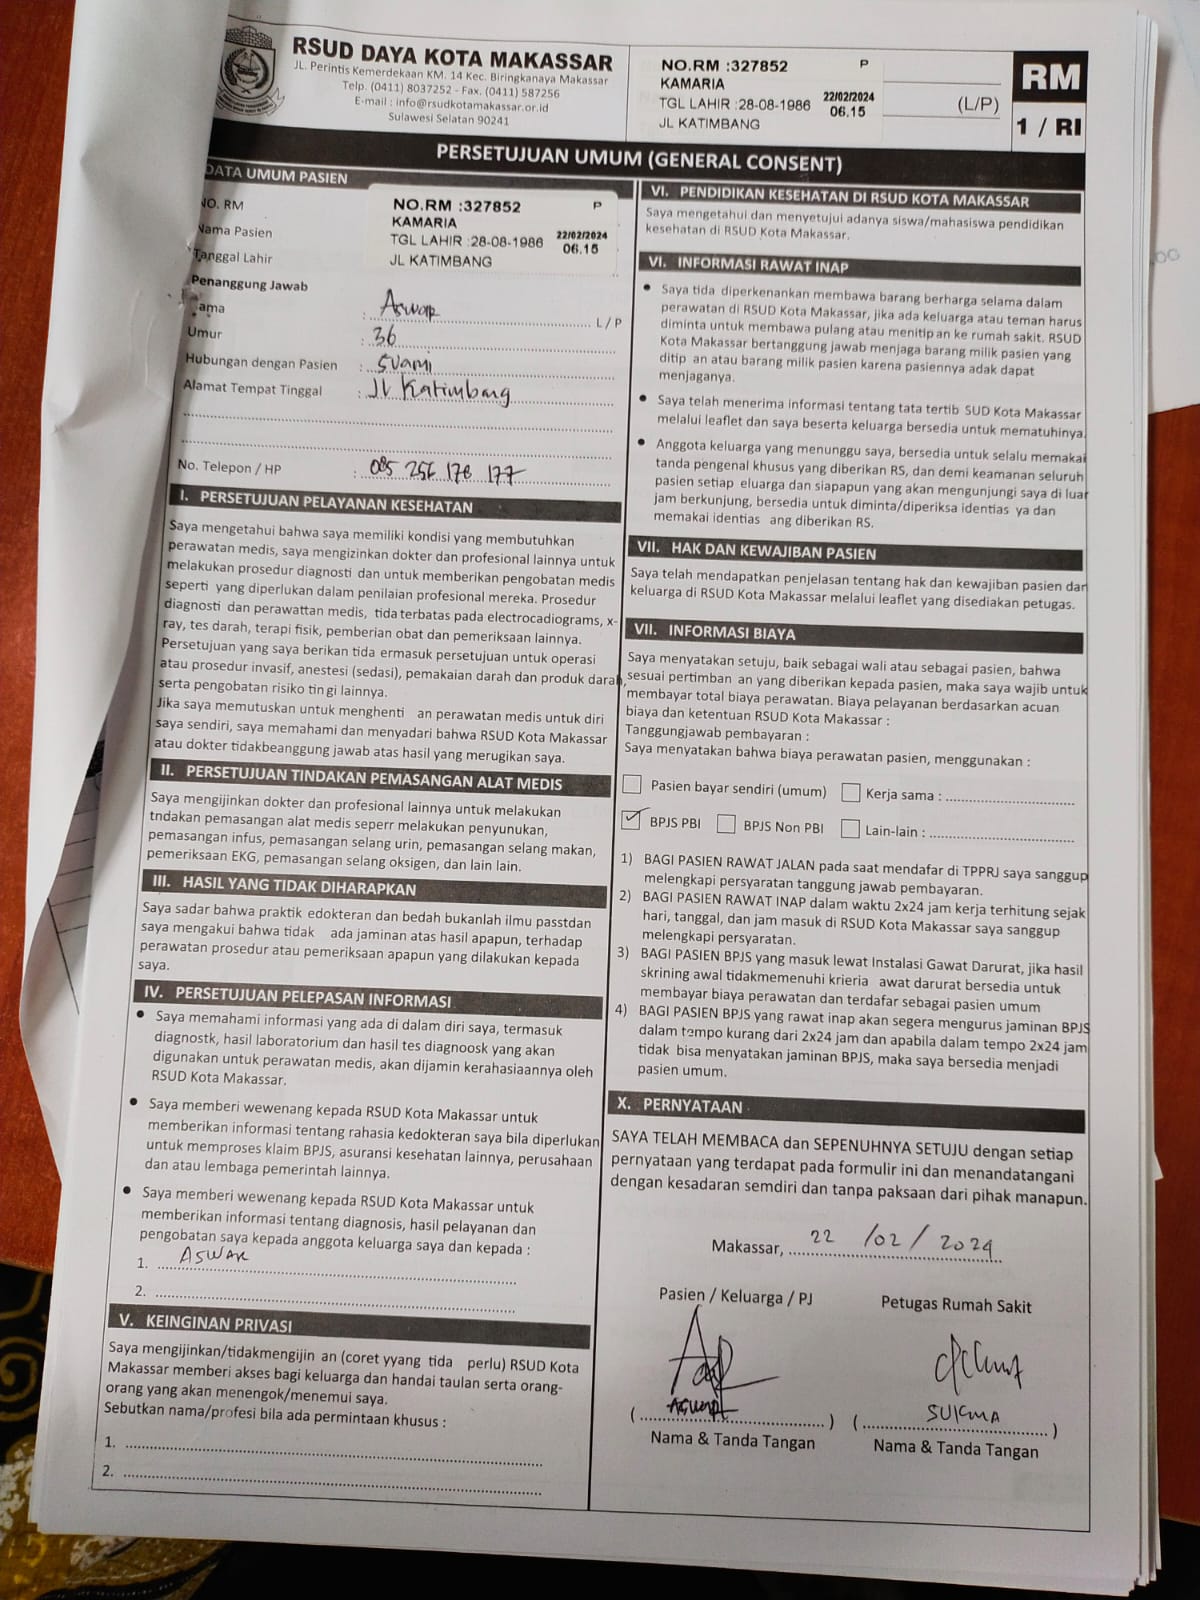 RSUD DAYA KOTA MAKASSAR
JL. Perintis Kemerdekaan KM. 14 Kec. Biringkanaya Makassar
Telp. (0411) 8037252 - Fax. (0411) 587256
E-mail : info@rsudkotamakassar.or.id
Sulawesi Selatan 90241
NO.RM :327852 P
KAMARIA
TGL LAHIR :28-08-1986 22/02/2024 06.15
JL KATIMBANG
(L/P)
RM
1 / RI
PERSETUJUAN UMUM (GENERAL CONSENT)
DATA UMUM PASIEN
NO. RM
Nama Pasien
Tanggal Lahir
NO.RM :327852 P
KAMARIA
TGL LAHIR :28-08-1986 22/02/2024 06.15
JL KATIMBANG
Penanggung Jawab
ama : Aswar L / P
Umur : 36
Hubungan dengan Pasien : Suami
Alamat Tempat Tinggal : Jl Katimbang
No. Telepon / HP :
I. PERSETUJUAN PELAYANAN KESEHATAN
Saya mengetahui bahwa saya memiliki kondisi yang membutuhkan
perawatan medis, saya mengizinkan dokter dan profesional lainnya untuk
melakukan prosedur diagnosti dan untuk memberikan pengobatan medis
seperti yang diperlukan dalam penilaian profesional mereka. Prosedur
diagnosti dan perawattan medis, tida terbatas pada electrocadiograms, x-
ray, tes darah, terapi fisik, pemberian obat dan pemeriksaan lainnya.
Persetujuan yang saya berikan tida ermasuk persetujuan untuk operasi
atau prosedur invasif, anestesi (sedasi), pemakaian darah dan produk darah,
serta pengobatan risiko tingi lainnya.
Jika saya memutuskan untuk menghenti an perawatan medis untuk diri
saya sendiri, saya memahami dan menyadari bahwa RSUD Kota Makassar
atau dokter tidakbeanggung jawab atas hasil yang merugikan saya.
II. PERSETUJUAN TINDAKAN PEMASANGAN ALAT MEDIS
Saya mengijinkan dokter dan profesional lainnya untuk melakukan
tndakan pemasangan alat medis seperr melakukan penyunukan,
pemasangan infus, pemasangan selang urin, pemasangan selang makan,
pemeriksaan EKG, pemasangan selang oksigen, dan lain lain.
III. HASIL YANG TIDAK DIHARAPKAN
Saya sadar bahwa praktik edokteran dan bedah bukanlah ilmu passtdan
saya mengakui bahwa tidak ada jaminan atas hasil apapun, terhadap
perawatan prosedur atau pemeriksaan apapun yang dilakukan kepada
saya.
IV. PERSETUJUAN PELEPASAN INFORMASI
• Saya memahami informasi yang ada di dalam diri saya, termasuk
diagnostk, hasil laboratorium dan hasil tes diagnoosk yang akan
digunakan untuk perawatan medis, akan dijamin kerahasiaannya oleh
RSUD Kota Makassar.
• Saya memberi wewenang kepada RSUD Kota Makassar untuk
memberikan informasi tentang rahasia kedokteran saya bila diperlukan
untuk memproses klaim BPJS, asuransi kesehatan lainnya, perusahaan
dan atau lembaga pemerintah lainnya.
• Saya memberi wewenang kepada RSUD Kota Makassar untuk
memberikan informasi tentang diagnosis, hasil pelayanan dan
pengobatan saya kepada anggota keluarga saya dan kepada :
1. ASWAR
2.
V. KEINGINAN PRIVASI
Saya mengijinkan/tidakmengijin an (coret yyang tida perlu) RSUD Kota
Makassar memberi akses bagi keluarga dan handai taulan serta orang-
orang yang akan menengok/menemui saya.
Sebutkan nama/profesi bila ada permintaan khusus :
1.
2.
VI. PENDIDIKAN KESEHATAN DI RSUD KOTA MAKASSAR
Saya mengetahui dan menyetujui adanya siswa/mahasiswa pendidikan
kesehatan di RSUD Kota Makassar.
VI. INFORMASI RAWAT INAP
• Saya tida diperkenankan membawa barang berharga selama dalam
perawatan di RSUD Kota Makassar, jika ada keluarga atau teman harus
diminta untuk membawa pulang atau menitip an ke rumah sakit. RSUD
Kota Makassar bertanggung jawab menjaga barang milik pasien yang
ditip an atau barang milik pasien karena pasiennya adak dapat
menjaganya.
• Saya telah menerima informasi tentang tata tertib SUD Kota Makassar
melalui leaflet dan saya beserta keluarga bersedia untuk mematuhinya.
• Anggota keluarga yang menunggu saya, bersedia untuk selalu memakai
tanda pengenal khusus yang diberikan RS, dan demi keamanan seluruh
pasien setiap eluarga dan siapapun yang akan mengunjungi saya di luar
jam berkunjung, bersedia untuk diminta/diperiksa identias ya dan
memakai identias ang diberikan RS.
VII. HAK DAN KEWAJIBAN PASIEN
Saya telah mendapatkan penjelasan tentang hak dan kewajiban pasien dan
keluarga di RSUD Kota Makassar melalui leaflet yang disediakan petugas.
VII. INFORMASI BIAYA
Saya menyatakan setuju, baik sebagai wali atau sebagai pasien, bahwa
sesuai pertimban an yang diberikan kepada pasien, maka saya wajib untuk
membayar total biaya perawatan. Biaya pelayanan berdasarkan acuan
biaya dan ketentuan RSUD Kota Makassar :
Tanggungjawab pembayaran :
Saya menyatakan bahwa biaya perawatan pasien, menggunakan :
Pasien bayar sendiri (umum) Kerja sama :
✓ BPJS PBI BPJS Non PBI Lain-lain :
1) BAGI PASIEN RAWAT JALAN pada saat mendafar di TPPRJ saya sanggup
melengkapi persyaratan tanggung jawab pembayaran.
2) BAGI PASIEN RAWAT INAP dalam waktu 2x24 jam kerja terhitung sejak
hari, tanggal, dan jam masuk di RSUD Kota Makassar saya sanggup
melengkapi persyaratan.
3) BAGI PASIEN BPJS yang masuk lewat Instalasi Gawat Darurat, jika hasil
skrining awal tidakmemenuhi krieria awat darurat bersedia untuk
membayar biaya perawatan dan terdafar sebagai pasien umum
4) BAGI PASIEN BPJS yang rawat inap akan segera mengurus jaminan BPJS
dalam tempo kurang dari 2x24 jam dan apabila dalam tempo 2x24 jam
tidak bisa menyatakan jaminan BPJS, maka saya bersedia menjadi
pasien umum.
X. PERNYATAAN
SAYA TELAH MEMBACA dan SEPENUHNYA SETUJU dengan setiap
pernyataan yang terdapat pada formulir ini dan menandatangani
dengan kesadaran semdiri dan tanpa paksaan dari pihak manapun.
Makassar, 22 /02/ 2024
Pasien / Keluarga / PJ Petugas Rumah Sakit
(ASWAR) (SUKMA)
Nama & Tanda Tangan Nama & Tanda Tangan